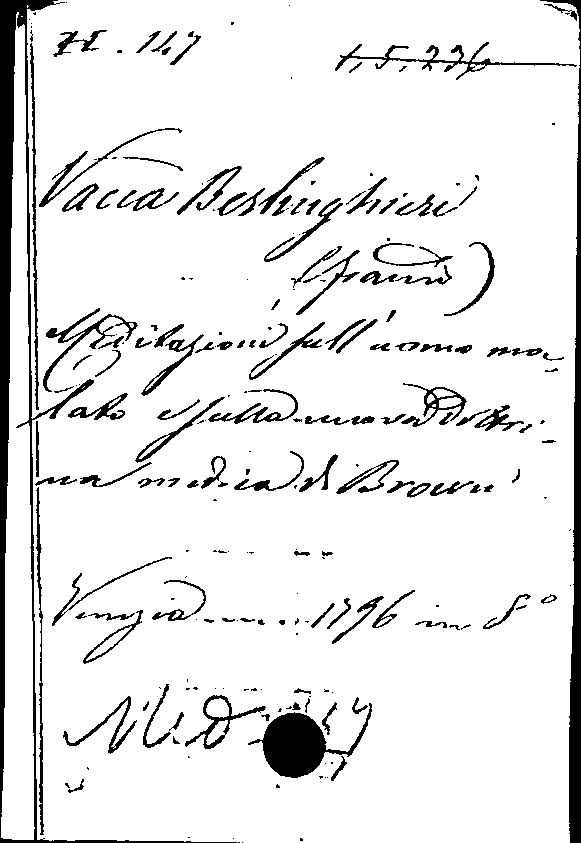 H. 147
1, 5, 236
Vacca Berlinghieri
(Franc.)
Meditazioni sull'uomo ma-
lato e sulla nuova dottri-
na medica di Brown
Venezia 1796 in 8°
Med